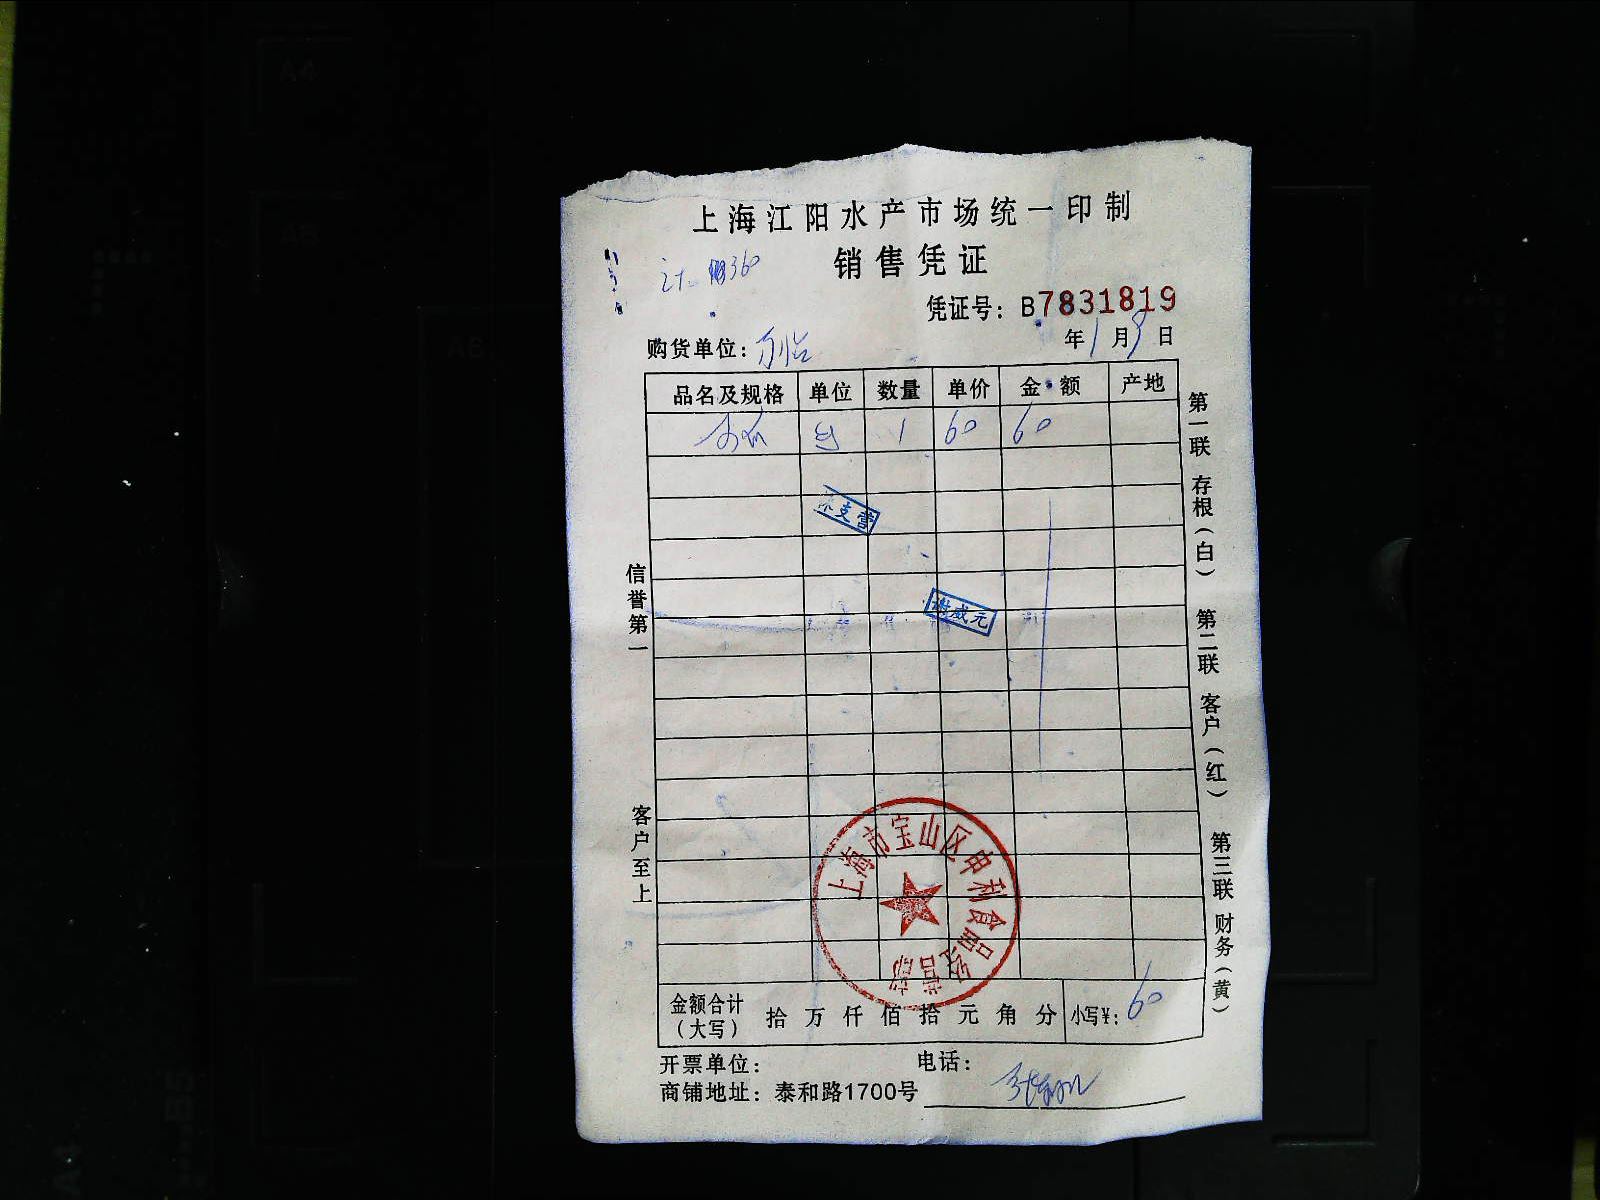 上海江阳水产市场统一印制
销售凭证
360
凭证号：B7831819
购货单位：
年1月9日
品名及规格 单位 数量 单价 金额 产地
包 1 60 60
未支营
谢威元
信誉第一
客户至上
第一联 存根（白） 第二联 客户（红） 第三联 财务（黄）
上海市宝山区申利食品经营部
金额合计（大写） 拾 万 仟 佰 拾 元 角 分 小写¥：60
开票单位： 电话：
商铺地址：泰和路1700号